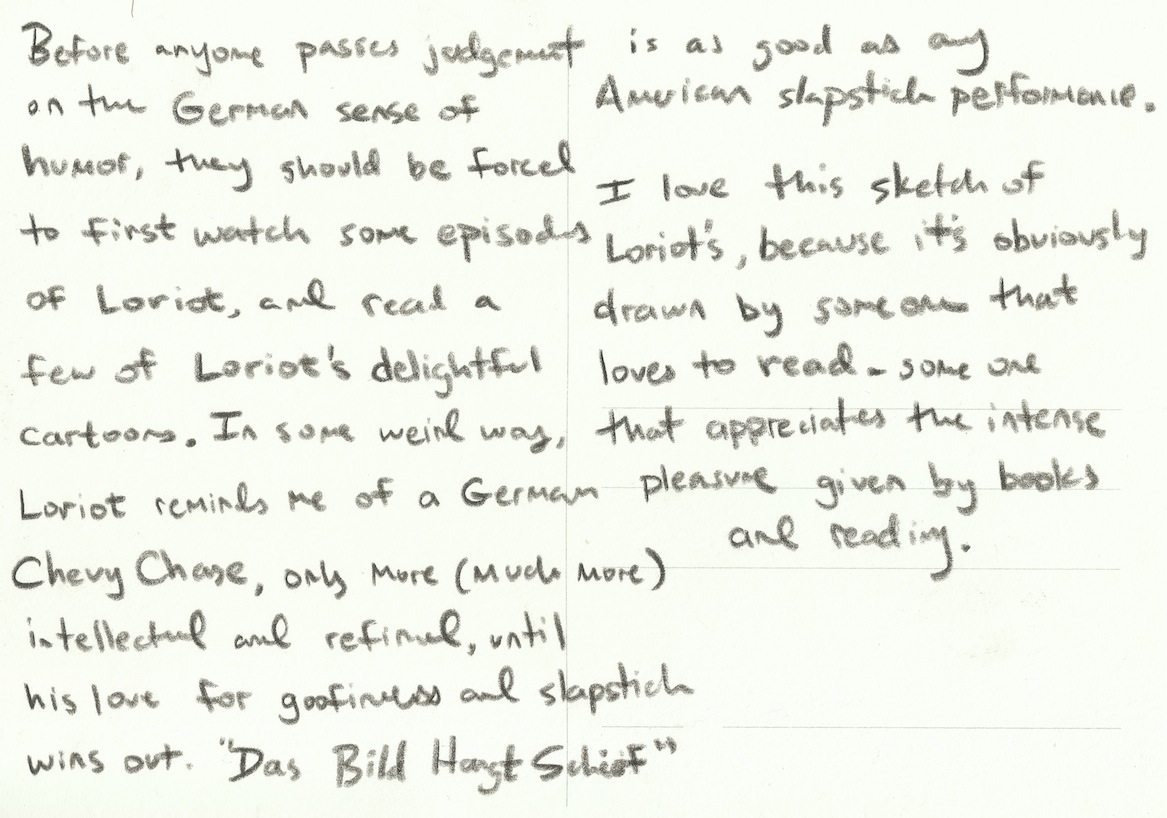 Before anyone passes judgement
on the German sense of
humor, they should be forced
to first watch some episodes
of Loriot, and read a
few of Loriot's delightful
cartoons. In some weird way,
Loriot reminds me of a German
Chevy Chase, only more (much more)
intellectual and refined, until
his love for goofiness and slapstick
wins out. "Das Bild Hangt Schief"
is as good as any
American slapstick performance.
I love this sketch of
Loriot's, because it's obviously
drawn by someone that
loves to read - some one
that appreciates the intense
pleasure given by books
and reading.